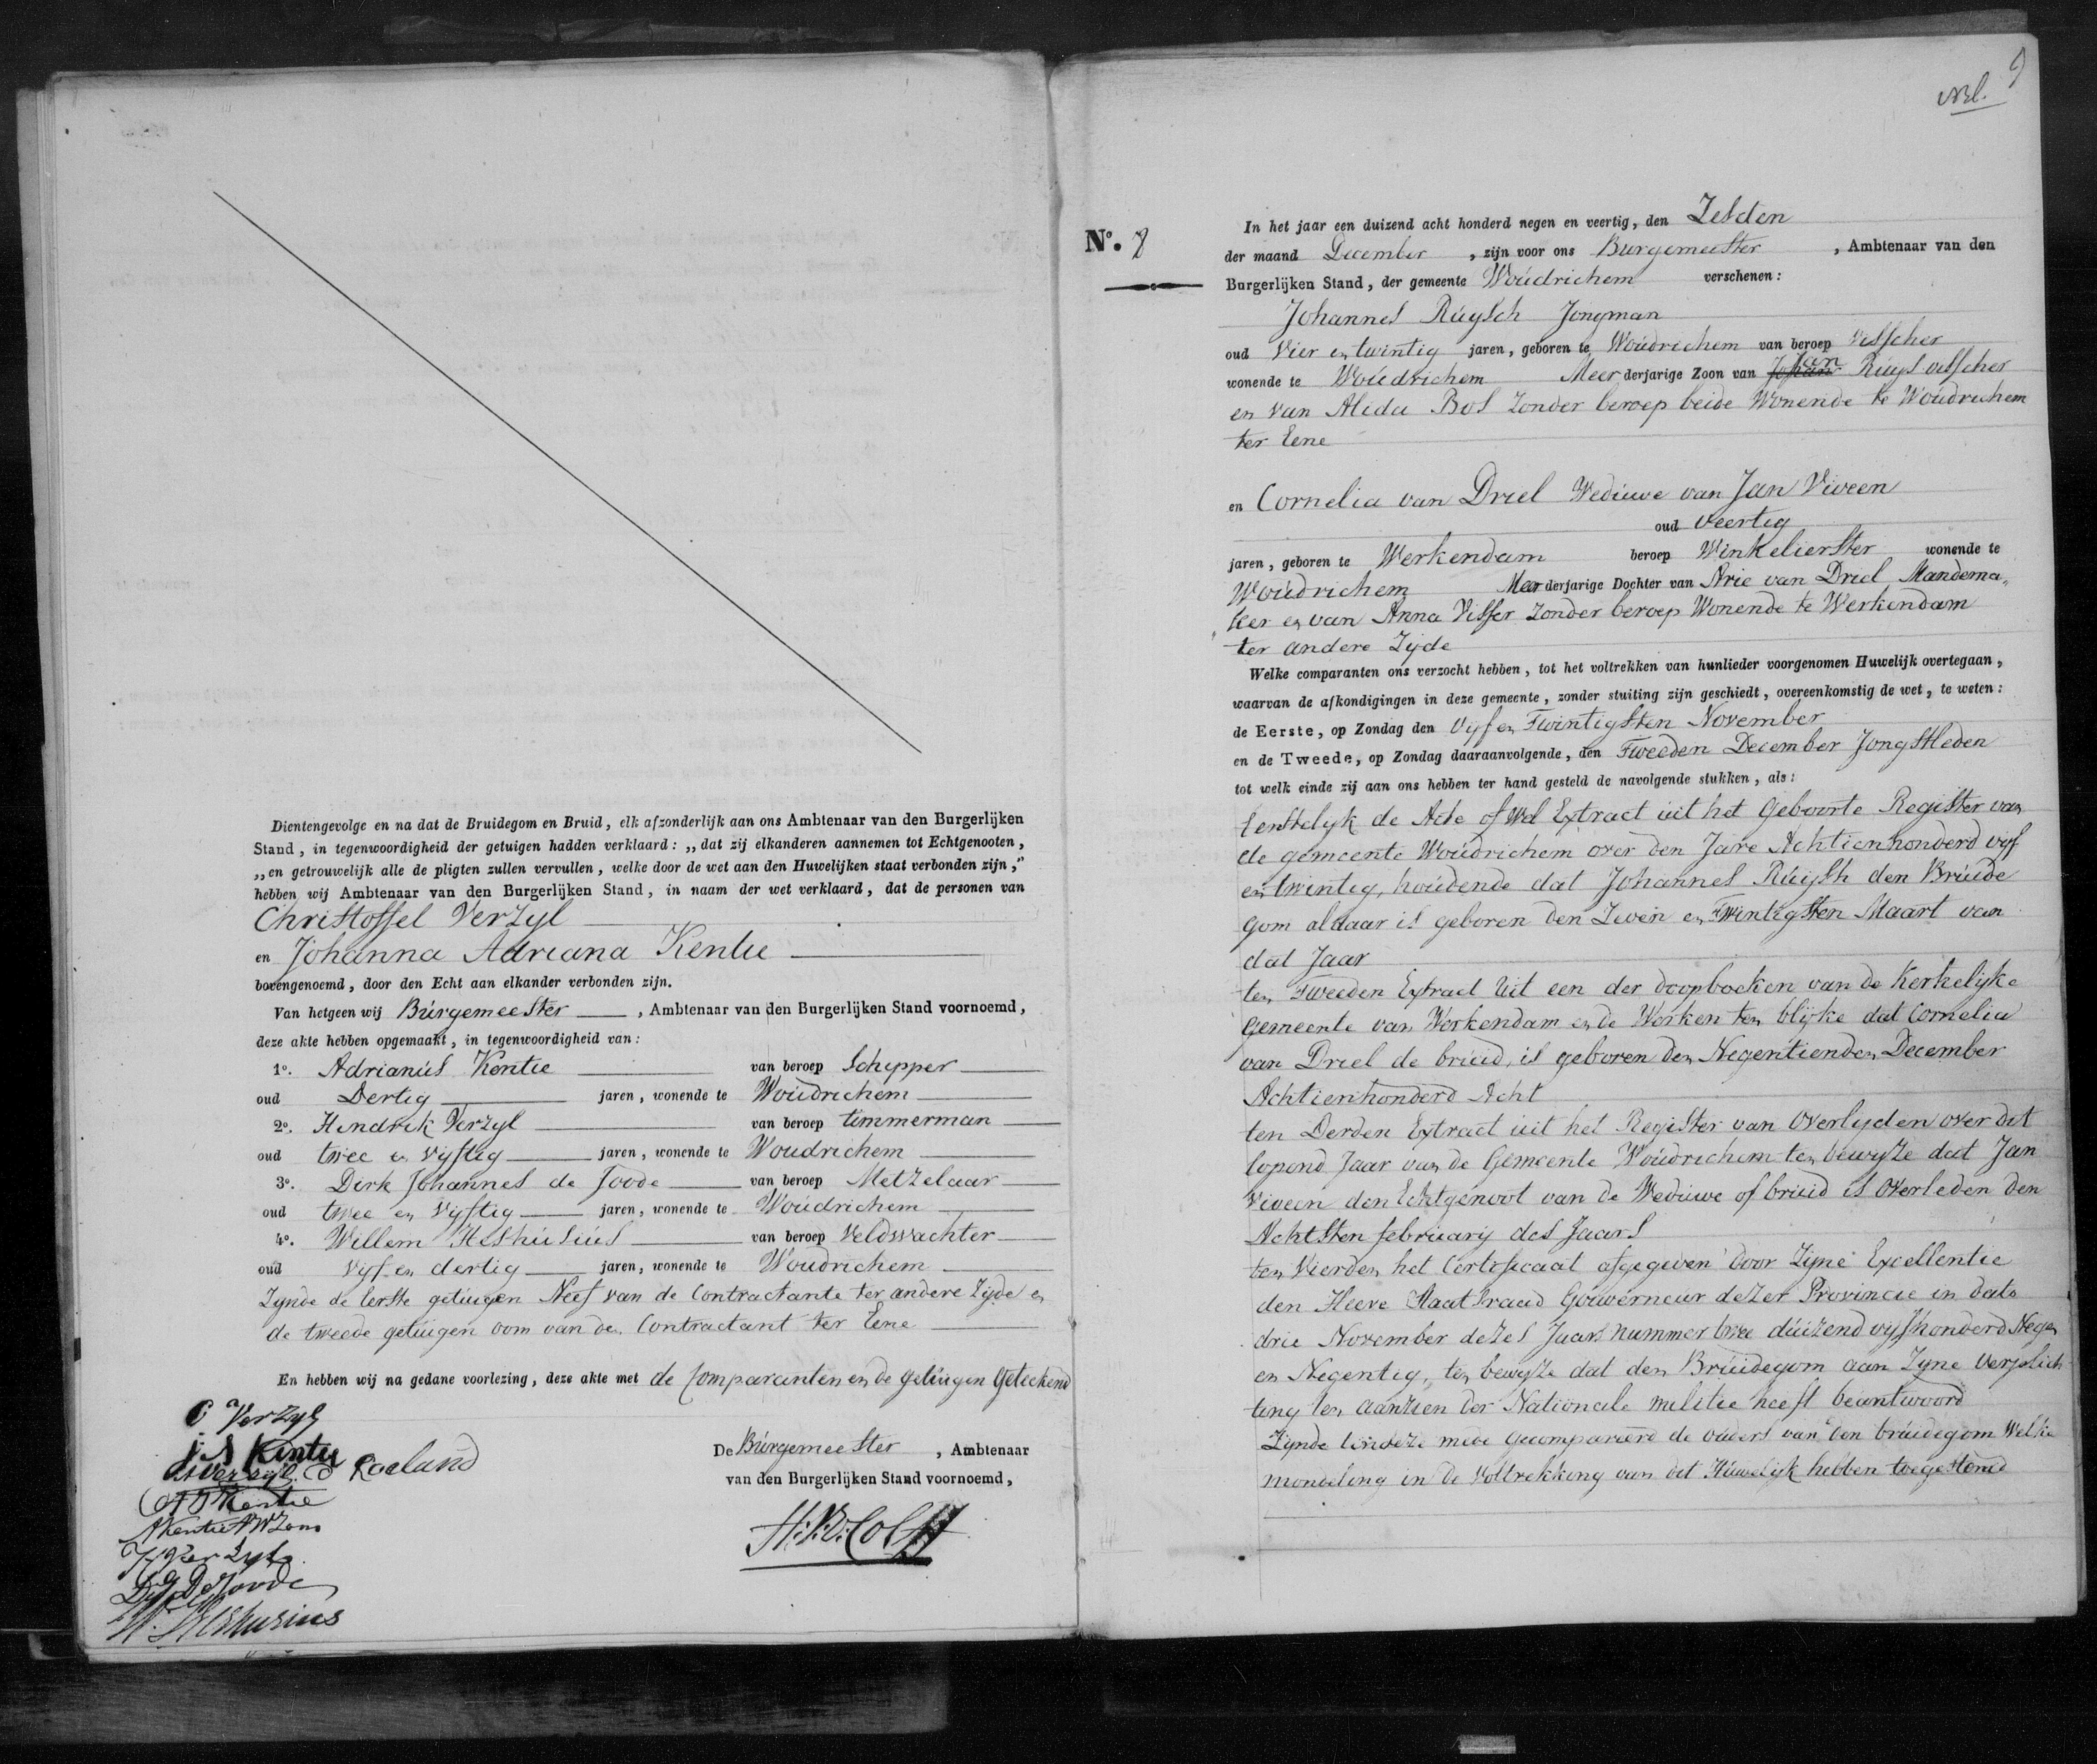 Dientengevolge en na dat de Bruidegom en Bruid, elk afzonderlijk aan ons Ambtenaar van den Burgerlijken
Stand, in tegenwoordigheid der getuigen hadden verklaard: „dat zij elkanderen aannemen tot Echtgenooten,
„en getrouwelijk alle de pligten zullen vervullen, welke door de wet aan den Huwelijken staat verbonden zijn,"
hebben wij Ambtenaar van den Burgerlijken Stand, in naam der wet verklaard, dat de personen van
Christoffel Verzyl
en Johanna Adriana Kentie
bovengenoemd, door den Echt aan elkander verbonden zijn.
Van hetgeen wij Burgemeester, Ambtenaar van den Burgerlijken Stand voornoemd,
deze akte hebben opgemaakt, in tegenwoordigheid van:
1o. Adrianus Kentie van beroep Schipper
oud Dertig jaren, wonende te Woudrichem
2o. Hendrik Verzyl van beroep timmerman
oud twee en vyftig jaren, wonende te Woudrichem
3o. Dirk Johannes de Joode van beroep Metzelaar
oud twee en vyftig jaren, wonende te Woudrichem
4o. Willem Heshusius van beroep Veldwachter
oud vyf en dertig jaren, wonende te Woudrichem
Zynde de Eerste getuigen Neef van de Contractante ter andere Zijde en
de tweede getuigen oom van den Contractant ter Eene
En hebben wij na gedane voorlezing, deze akte met de Comparanten en de getuigen Geteekend
C Verzyl
Kentie
Roeland
Kentie
A Kentie AWZoon
Verzyl
DJ De Joode
W. Heshusius
De Burgemeester, Ambtenaar
van den Burgerlijken Stand voornoemd,
Bl. 9
No. 8
In het jaar een duizend acht honderd negen en veertig, den Zesden
der maand December, zijn voor ons Burgemeester, Ambtenaar van den
Burgerlijken Stand, der gemeente Woudrichem verschenen:
Johannes Ruysch Jongman
oud Vier en twintig jaren, geboren te Woudrichem van beroep Visscher
wonende te Woudrichem Meerderjarige Zoon van Johan Jan Ruys visscher
en van Alida Bos Zonder beroep beide Wonende te Woudrichem
ter Eene
en Cornelia van Driel Weduwe van Jan Viveen
oud veertig
jaren, geboren te Werkendam beroep Winkelierster wonende te
Woudrichem Meerderjarige Dochter van Arie van Driel Mandema„
ker en van Anna Visser Zonder beroep Wonende te Werkendam
ter andere Zijde
Welke comparanten ons verzocht hebben, tot het voltrekken van hunlieder voorgenomen Huwelijk overtegaan,
waarvan de afkondigingen in deze gemeente, zonder stuiting zijn geschiedt, overeenkomstig de wet, te weten:
de Eerste, op Zondag den Vyf en Twintigsten November
en de Tweede, op Zondag daaraanvolgende, den Tweeden December Jongstleden
tot welk einde zij aan ons hebben ter hand gesteld de navolgende stukken, als:
Eerstelyk de Acte of Wel Extract uit het Geboorte Register van
de gemeente Woudrichem over den Jare Achtienhonderd vyf
en twintig, houdende dat Johannes Ruysch den Bruide
gom aldaar is geboren den Zeven en Twintigsten Maart van
dat Jaar
ten Tweeden Extract Uit een der doopboeken van de Kerkelijke
gemeente van Werkendam en de Werken ten blijke dat Cornelia
van Driel de bruid, is geboren den Negentienden December
Achtienhonderd Acht
ten Derden Extract uit het Register van Overlyden over dit
lopend Jaar van de Gemeente Woudrichem ten bewyze dat Jan
Viveen den Echtgenoot van de Weduwe of bruid is Overleden den
Achtsten february des Jaars
ten Vierden het Certificaat afgegeven door Zyne Excellentie
den Heere Staatsraad Gouverneur dezer Provincie in dato
drie November dezes Jaars nummer twee duizend vyfhonderd Negen
en Negentig, ten bewyze dat den Bruidegom aan Zyne Verplich
ting ten aanzien der Nationale militie heeft beantwoord
Zynde ten deze mede gecompareerd de ouders van den bruidegom Welke
mondeling in de Voltrekking van dit Huwelyk hebben toegestemd